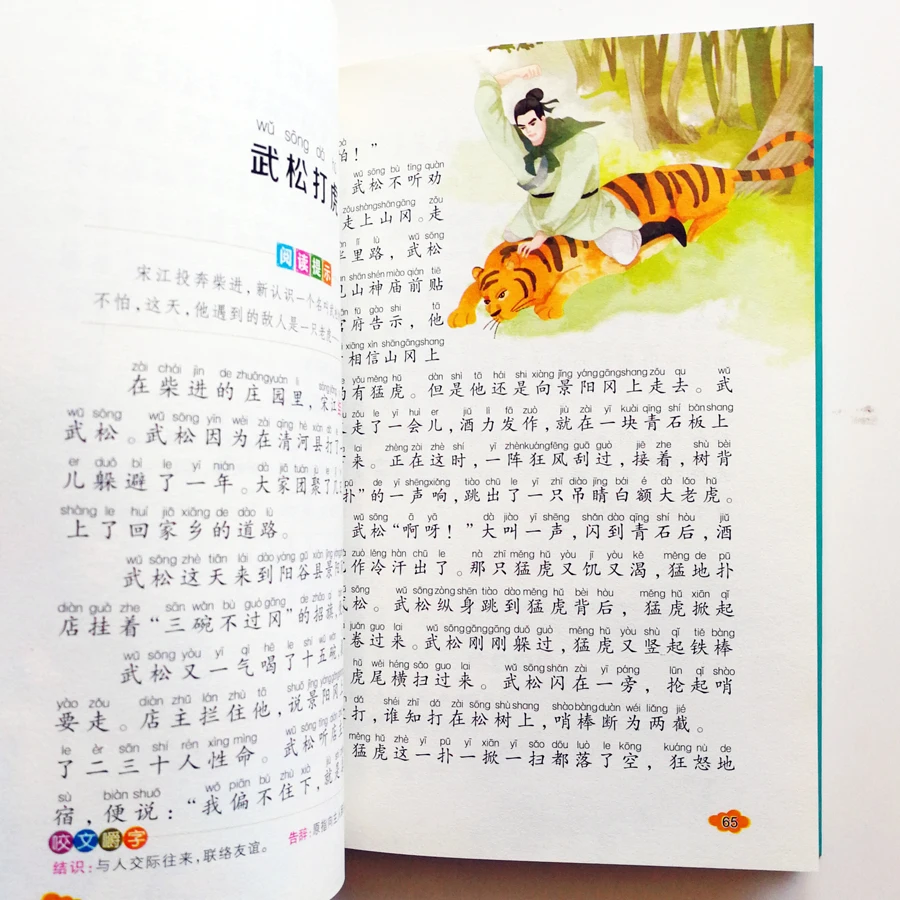 wǔ sōng dǎ
武松打虎
阅读提示
宋江投奔柴进，新认识一个名叫
不怕，这天，他遇到的敌人是一只老虎
zài chái jìn de zhuāngyuán lǐ
在柴进的庄园里，宋江
wǔ sōng wǔ sōng yīn wèi zài qīng hé xiàn dǎ
武松。武松因为在清河县打了
er duǒ bì le yī nián dà jiā tuán jù le
儿躲避了一年。大家团聚了几
shàng le huí jiā xiāng de dào lù
上了回家乡的道路。
wǔ sōng zhè tiān lái dào yáng gǔ xiàn jǐng yáng
武松这天来到阳谷县景
diàn guà zhe sān wǎn bù guò gāng de zhāo qí
店挂着“三碗不过冈”的招旗，
wǔ sōng yòu yī qì hē le shí wǔ wǎn
武松又一气喝了十五碗，
yào zǒu diàn zhǔ lán zhù tā shuō jǐng yáng gāng
要走。店主拦住他，说景阳冈
le èr sān shí rén xìng mìng wǔ sōng tīng diàn
了二三十人性命。武松听店主
sù biàn shuō wǒ piān bù zhù xià jiù shì
宿，便说：“我偏不住下，就是
咬文嚼字
结识：与人交际往来，联络友谊。
告辞：原指向主人
pà
怕！”
wǔ sōng bù tīng quàn
武松不听劝
zǒu shàng shān gāng zǒu
走上山冈。走
lǐ lù wǔ sōng
半里路，武松
shān shén miào qián tiē
见山神庙前贴
fǔ gào shì tā
官府告示，他
xiāng xìn shān gāng shang
相信山冈上
yǒu měng hǔ dàn shì tā hái shi xiàng jǐng yáng gāng shang zǒu qu wǔ
的有猛虎。但是他还是向景阳冈上走去。武
zǒu le yī huì er jiǔ lì fā zuò jiù zài yī kuài qīng shí bǎn shang
走了一会儿，酒力发作，就在一块青石板上
lai zhèng zài zhè shí yī zhèn kuáng fēng guā guò jiē zhe shù bèi
下来。正在这时，一阵狂风刮过，接着，树背
pū de yī shēng xiǎng tiào chū le yī zhī diào jīng bái é dà lǎo hǔ
扑”的一声响，跳出了一只吊睛白额大老虎。
wǔ sōng ā yā dà jiào yī shēng shǎn dào qīng shí hòu jiǔ
武松“啊呀！”大叫一声，闪到青石后，酒
zuò lěng hàn chū le nà zhī měng hǔ yòu jī yòu kě měng de pū
作冷汗出了。那只猛虎又饥又渴，猛地扑
wǔ sōng zòng shēn tiào dào měng hǔ bèi hòu měng hǔ xiān qǐ
武松。武松纵身跳到猛虎背后，猛虎掀起
juǎn guo lai wǔ sōng gāng gāng duǒ guò měng hǔ yòu shù qǐ tiě bàng
卷过来。武松刚刚躲过，猛虎又竖起铁棒
hǔ wěi héng sǎo guo lai wǔ sōng shǎn zài yī páng lūn qǐ shào
虎尾横扫过来。武松闪在一旁，抡起哨
dǎ shéi zhī dǎ zài sōng shù shang shào bàng duàn wéi liǎng jié
打，谁知打在松树上，哨棒断为两截。
měng hǔ zhè yī pū yī xiān yī sǎo dōu luò le kōng kuáng nù de
猛虎这一扑一掀一扫都落了空，狂怒地
65